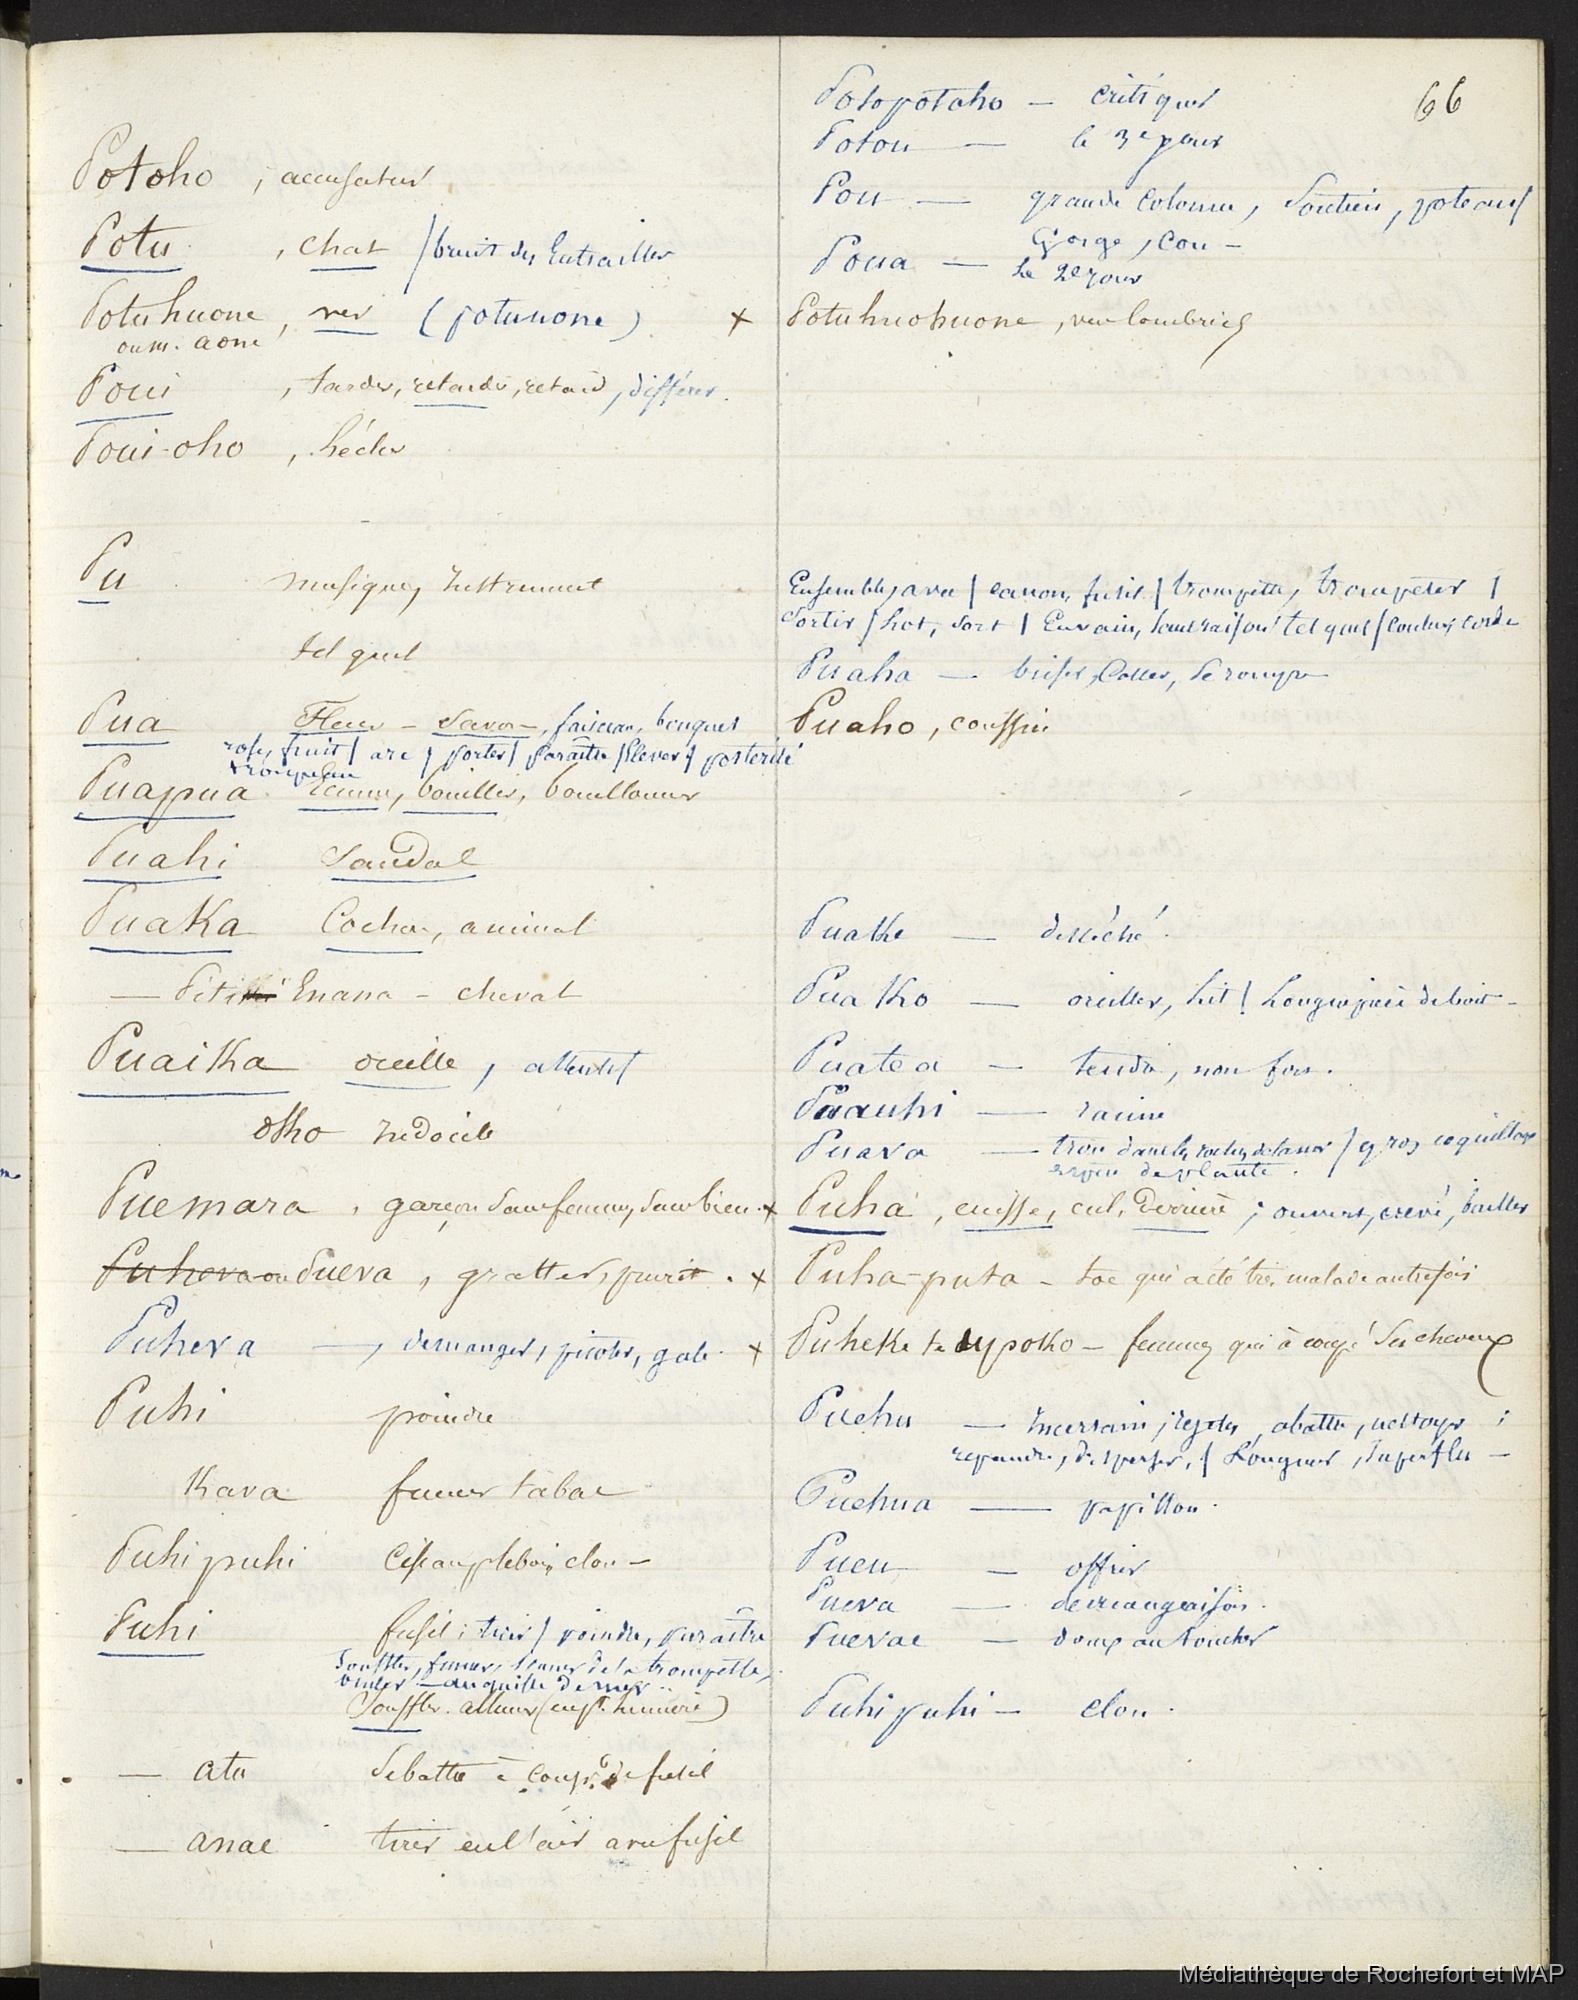 66
Potoho , accusateur
Potu , chat / bruit des Entrailles
Potuhuone , ver (potuuone)
oum. aone
Poui , tarder, retarder, retard, différer.
Poui-oho , hécler
Pu musique, Instrument
tel quel
Pua Fleur – Savon, faisceau, bouquet
rose, fruit / arc / porter / paraître / Elever / postérité
Puapua Ecume, bouillir, bouillonner
Puahi Sandal
Puaka Cochon, animal
— Piti Enana – cheval
Puaika oreille, attentif
oko Indocile
Puemara , garçon sans femme, sans bien. x
Puhova ou Pueva , gratter, prurit. x
Puheva —, demanger, picoter, gale. x
Puhi poindre
Kava fumer tabac
Puhipuhi clou –
Puhi fusil ; tirer / poindre, paraître
Souffler, fumer, sonner de la trompette,
– anguille de mer
Souffler. allumer (lumière)
— atu se battre à coups de fusil
— anae tirer en l'air avec fusil
Potopotoho — critiquer
Potou — le 3e jour
Pou — grande colonne, soutien, poteau /
Gorge, cou –
Poua — le 2e jour
x Potuhuohuone , ver lombric
Ensemble, avec / canon, fusil / trompette, trompeter /
Sortir / hot, sort / En vain, sans raison / tel quel / couler, corde
Puaha — briser, Casser, se rompre
Puaho , coussin
Puake — desséché.
Puako — oreiller, lit / Longue pièce de bois –
Puatea — tendre, non fort.
Puauhi — racine
Puava — trou dans les rochers de la mer / gros coquillage
espèce de plante.
Puha , cuisse, cul, Derrière ; ouvert, crevé, bailler
Puha-puta – toe qui a été très malade autrefois
Puheke te upoko – femme qui à coupé ses cheveux
Puehu — Incertain ; rejeter, abattre, nettoyer ;
repandre, disperser, / Longueur, superflu –
Puehua — papillon.
Pueu — offrir
Pueva — demangeaison.
Puevae — doux au toucher
Puhipuhi – clou.
Médiathèque de Rochefort et MAP